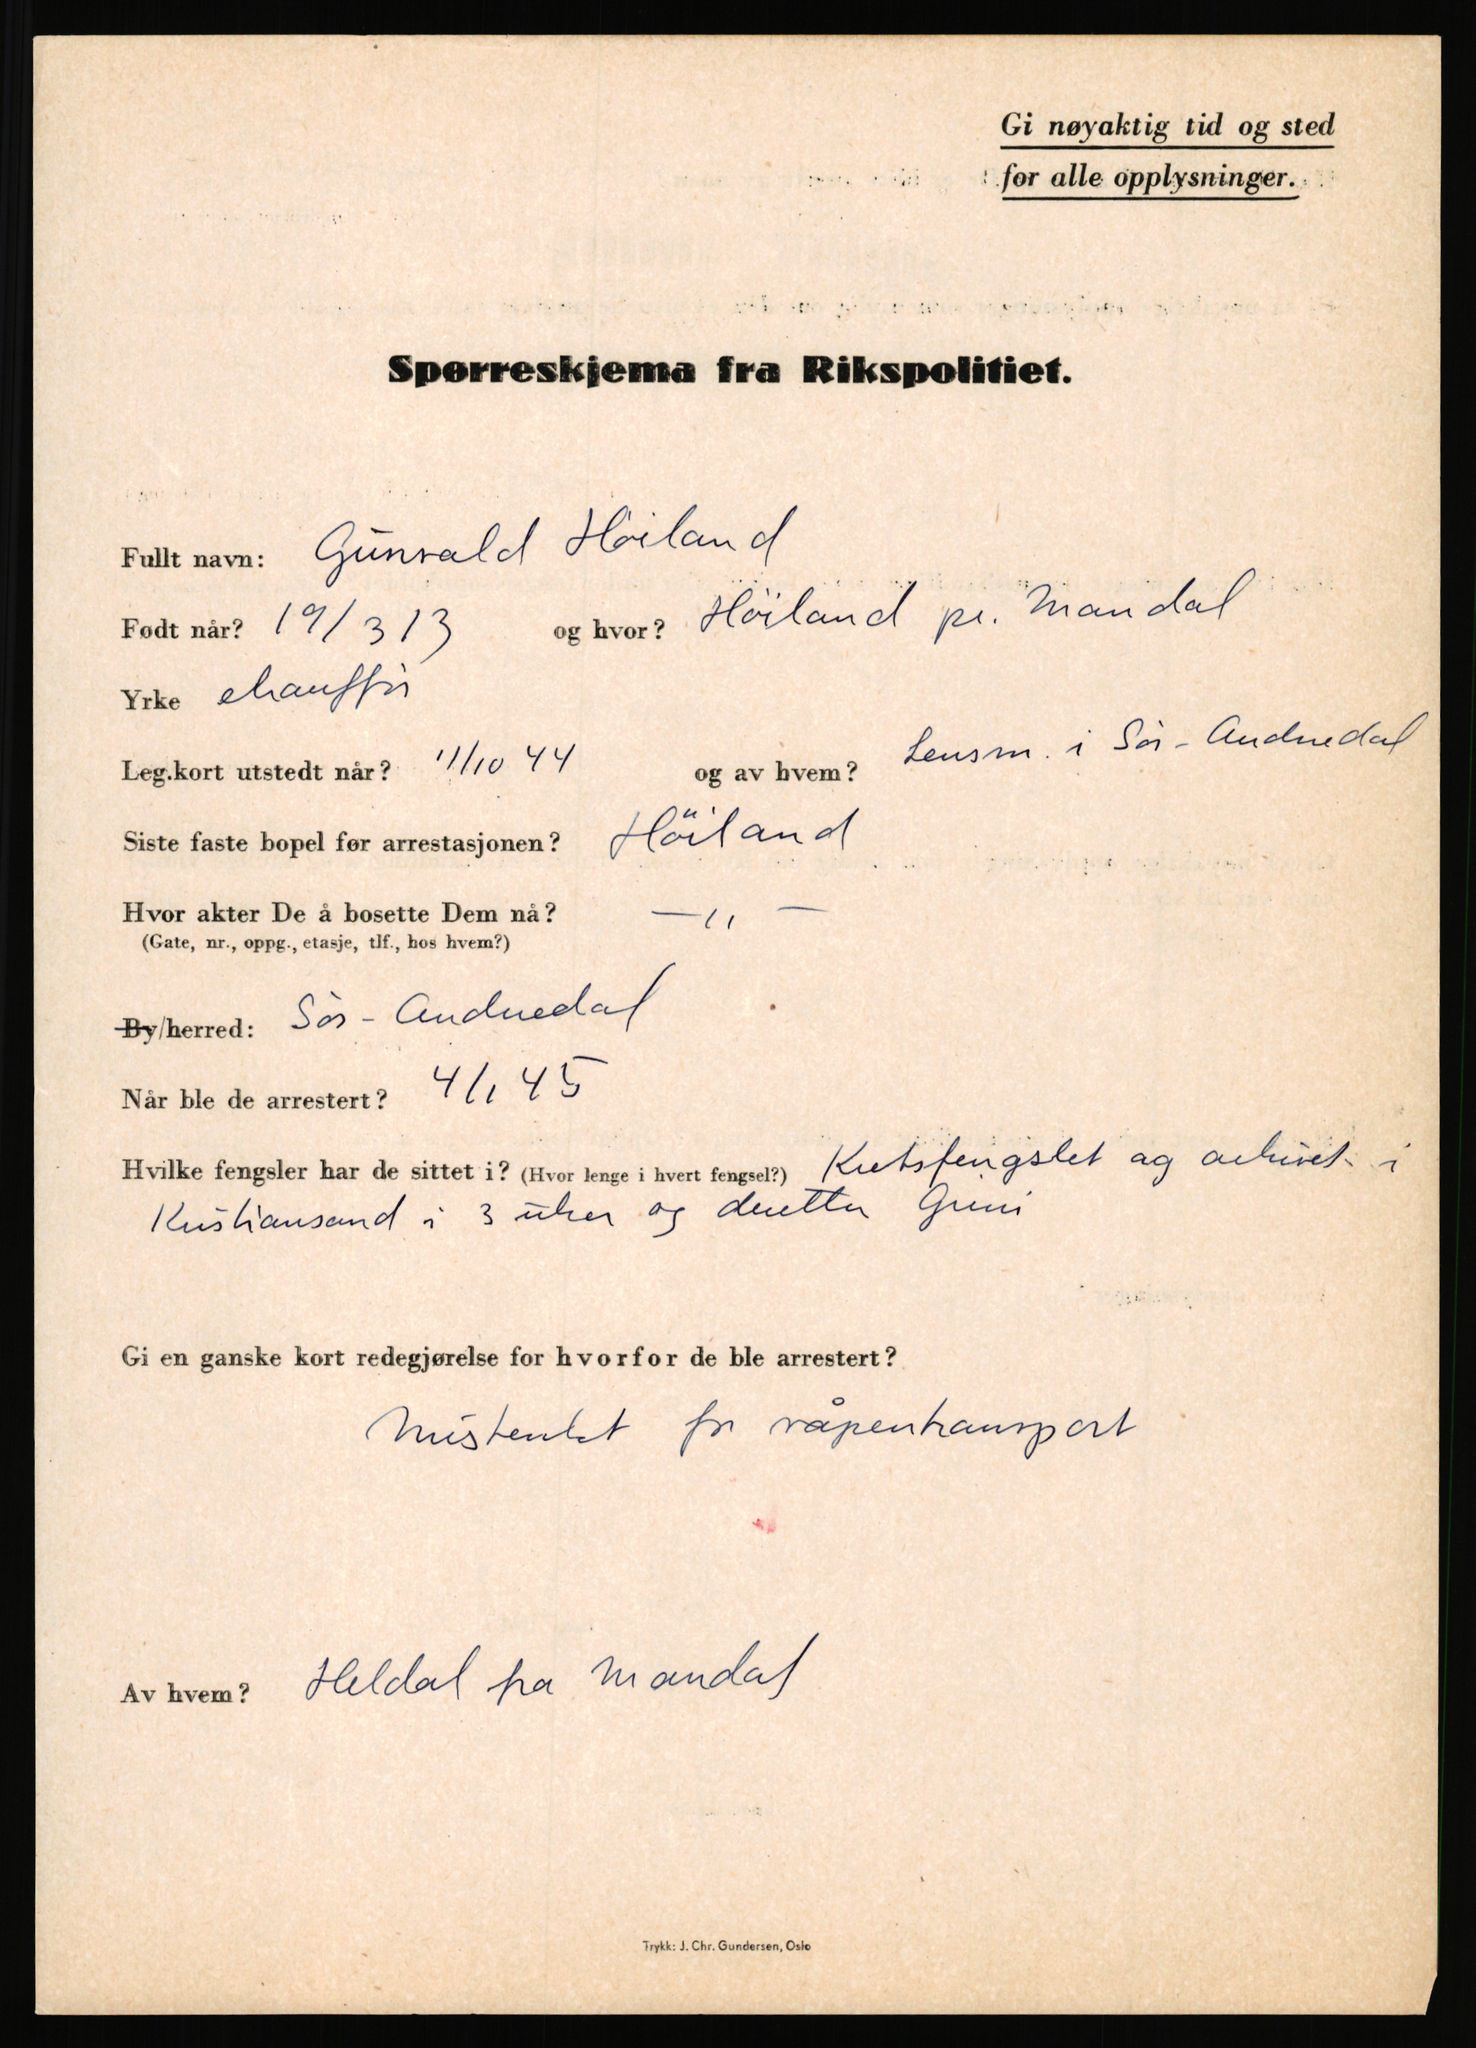 Gi nøyaktig tid og sted
for alle opplysninger.
Spørreskjema fra Rikspolitiet.
Fullt navn: Gunvald Höiland
Født når? 19/3 13 og hvor? Höiland pr. Mandal
Yrke chauffør
Leg.kort utstedt når? 11/10 44 og av hvem? Lensm. i Sör-Audnedal
Siste faste bopel før arrestasjonen? Höiland
Hvor akter De å bosette Dem nå? —"—
(Gate, nr., oppg., etasje, tlf., hos hvem?)
By/herred: Sör-Audnedal
Når ble de arrestert? 4/1 45
Hvilke fengsler har de sittet i? (Hvor lenge i hvert fengsel?) Kretsfengslet og arkivet i
Kristiansand i 3 uker og deretter Grini
Gi en ganske kort redegjørelse for hvorfor de ble arrestert?
Mistenkt for våpentransport
Av hvem? Heldal fra Mandal
Trykk: J. Chr. Gundersen, Oslo